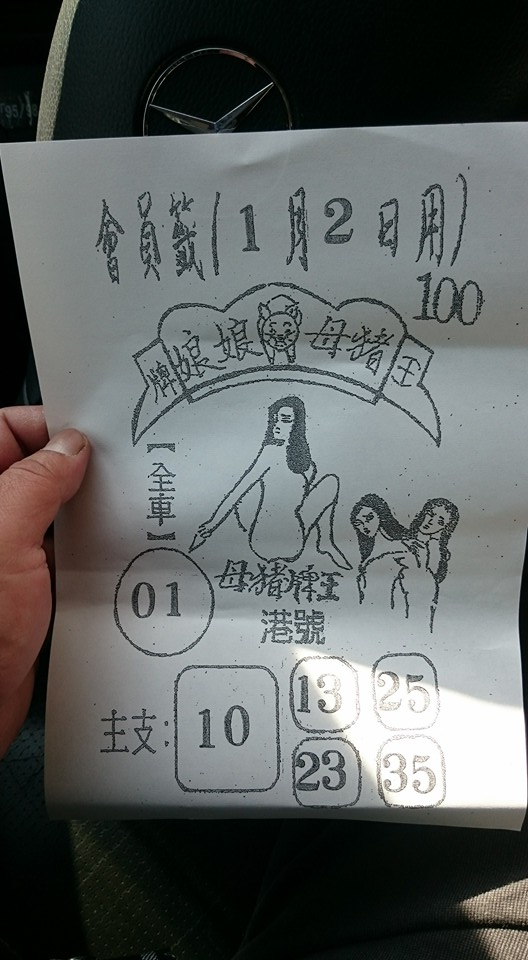 會員籤(1月2日用)
100
牌娘娘母猪王
【全車】
01
母猪牌王
港號
主支:
10
13 25
23 35